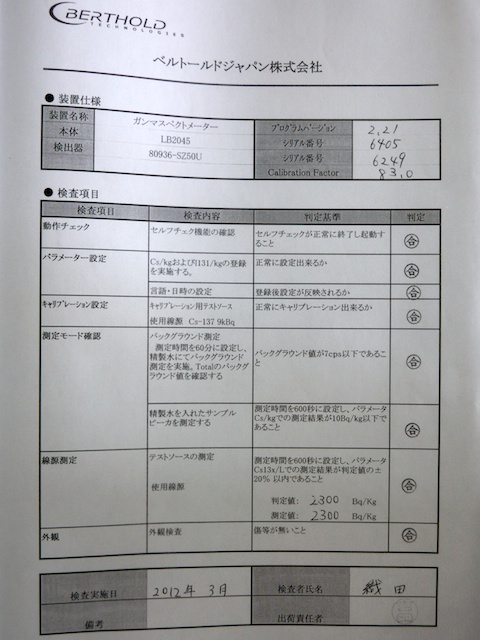 BERTHOLD
TECHNOLOGIES
ベルトールドジャパン株式会社
● 装置仕様
装置名称 ガンマスペクトメーター プログラムバージョン 2,21
本体 LB2045 シリアル番号 6405
検出器 80936-SZ50U シリアル番号 6249
Calibration Factor 83,0
● 検査項目
検査項目 検査内容 判定基準 判定
動作チェック セルフチェク機能の確認 セルフチェックが正常に終了し起動す
ること 合
パラメーター設定 Cs/kgおよびI131/kgの登録 正常に設定出来るか
を実施する。 合
言語・日時の設定 登録後設定が反映されるか 合
キャリブレーション設定 キャリブレーション用テストソース 正常にキャリブレーション出来るか
使用線源 Cs-137 9kBq 合
測定モード確認 バックグラウンド測定
測定時間を60分に設定し、
精製水にてバックグラウンド
測定を実施。Totalのバックグ
ラウンド値を確認する
バックグラウンド値が7cps以下であるこ
と 合
精製水を入れたサンプル
ビーカを測定する
測定時間を600秒に設定し、パラメータ
Cs/kgでの測定結果が10Bq/kg以下で
あること 合
線源測定 テストソースの測定
使用線源
測定時間を600秒に設定し、パラメータ
Cs13x/Lでの測定結果が判定値の±
20% 以内であること 合
判定値: 2300 Bq/Kg
測定値: 2300 Bq/Kg
外観 外観検査 傷等が無いこと 合
検査実施日 2012年 3月 検査者氏名 織田
備考 出荷責任者